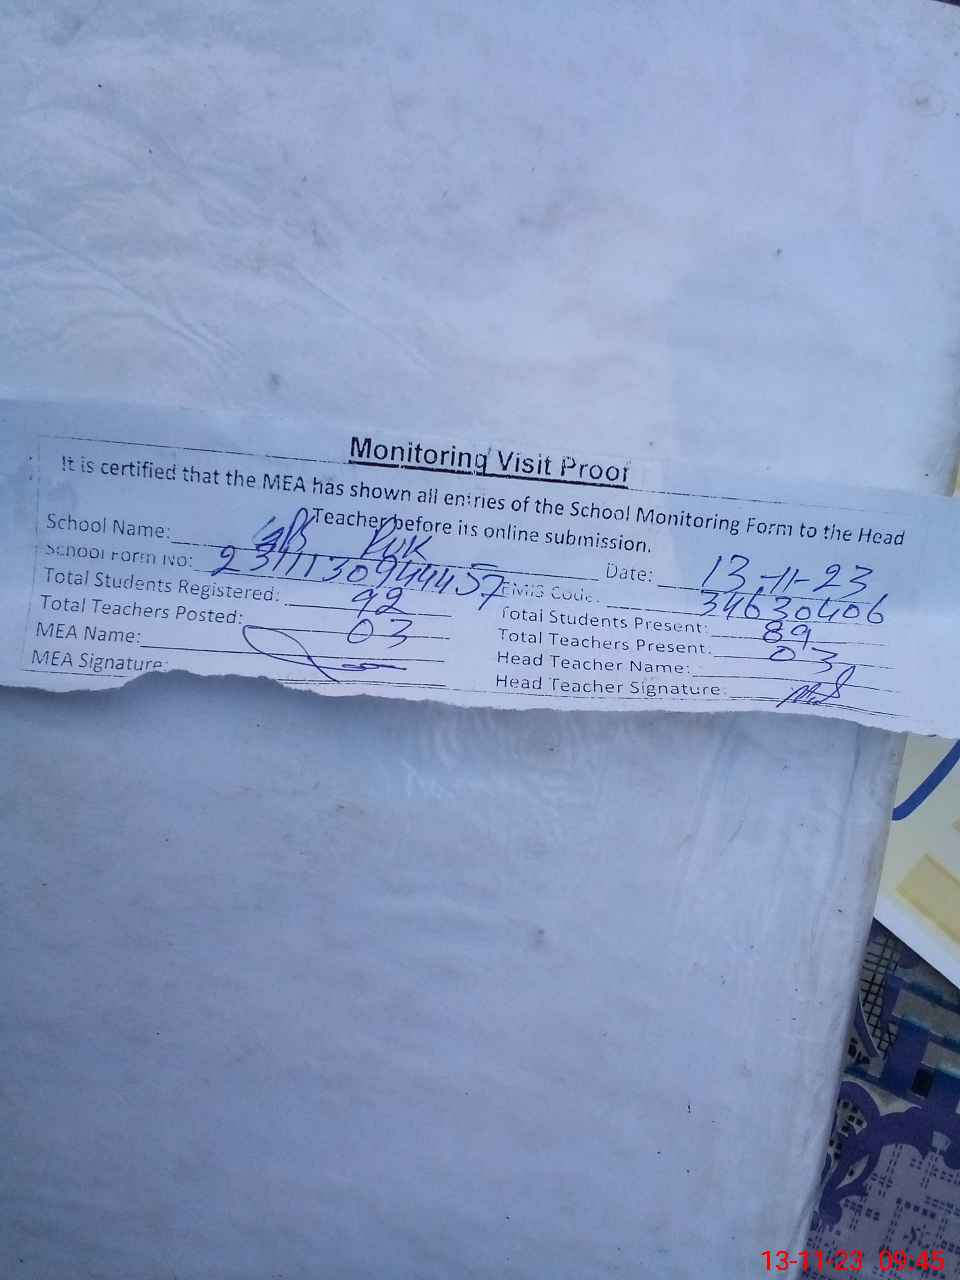 Monitoring Visit Proof
It is certified that the MEA has shown all entries of the School Monitoring Form to the Head
Teacher before its online submission.
School Name: GPS Date: 13-11-23
School Form No: 231113094445 EMIS Code: 34630406
Total Students Registered: 92 Total Students Present: 89
Total Teachers Posted: 03 Total Teachers Present: 03
MEA Name: Head Teacher Name:
MEA Signature: Head Teacher Signature:
13-11-23 09:45